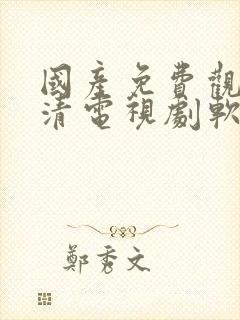 國產免費觀
清電視劇軟
鄭秀文